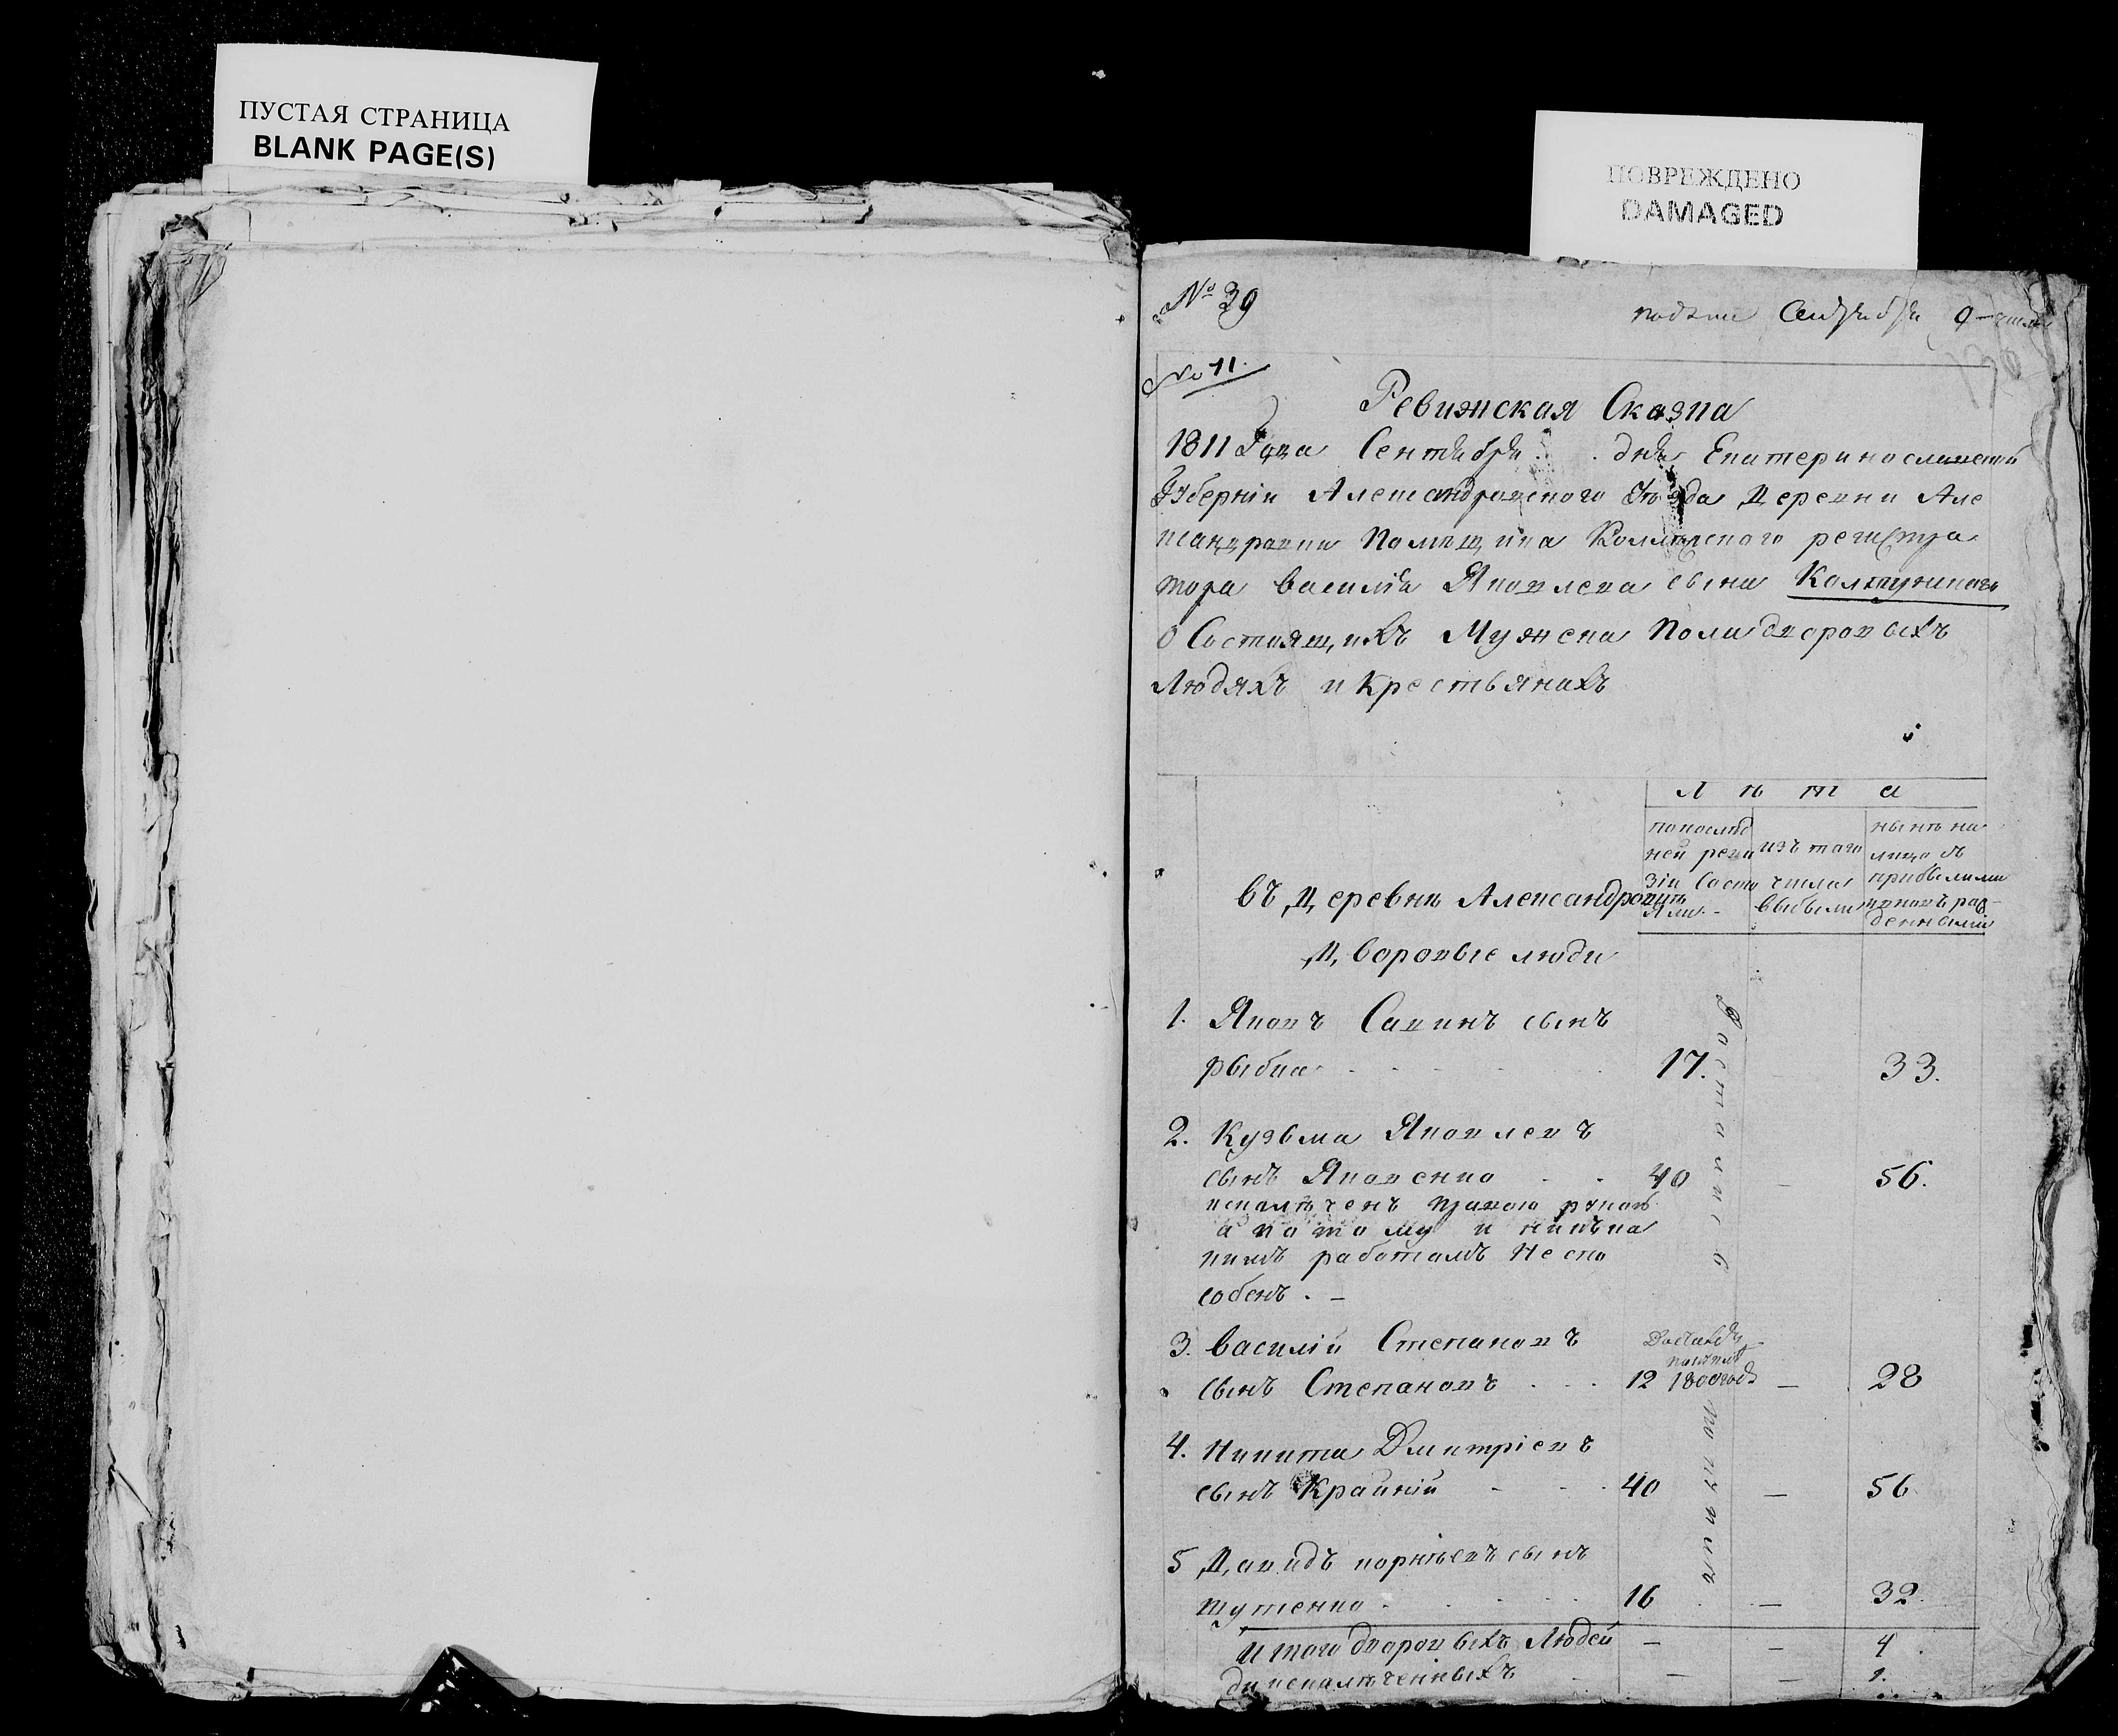 ПУСТАЯ СТРАНИЦА
BLANK PAGE(S)
ПОВРЕЖДЕНО
DAMAGED
№ 39
Сентября 9
№ 11.
Ревижская Сказка
1811 Года Сентября дня Екатеринославской
Губерніи Александровского Уѣзда Деревни Але
ксандровки Помѣщика Коллежского регистра
тора Василія Яковлева сына Колтуницкого
О Состоящихъ Мужска Пола дворовыхъ
Людяхъ и крестьянахъ
Л ѣ т а
по послѣд
ней реви
зіи Состо
яли
изъ того
числа
выбыли
нынѣ на
лицо съ
прибылыми
и вновь рож
денными
въ Деревнѣ Александровкѣ
Дворовые люди
1. Яковъ Савинъ сынъ
рыбка 17. 33.
2. Кузьма Яковлевъ
сынъ Яковенко 40 — 56.
искалѣченъ правою рукою
а потому и ни къ ка
кимъ работамъ Неспо
собенъ. —
3. Василій Степановъ
сынъ Степановъ 12 1800 года — 28
4. Никита Дмитріевъ
сынъ Крайній 40 — 56
5 Давидъ корнѣевъ сынъ
шутенко 16 — 32.
Итого дворовыхъ Людей — — 4
да искалѣченныхъ — — 1.